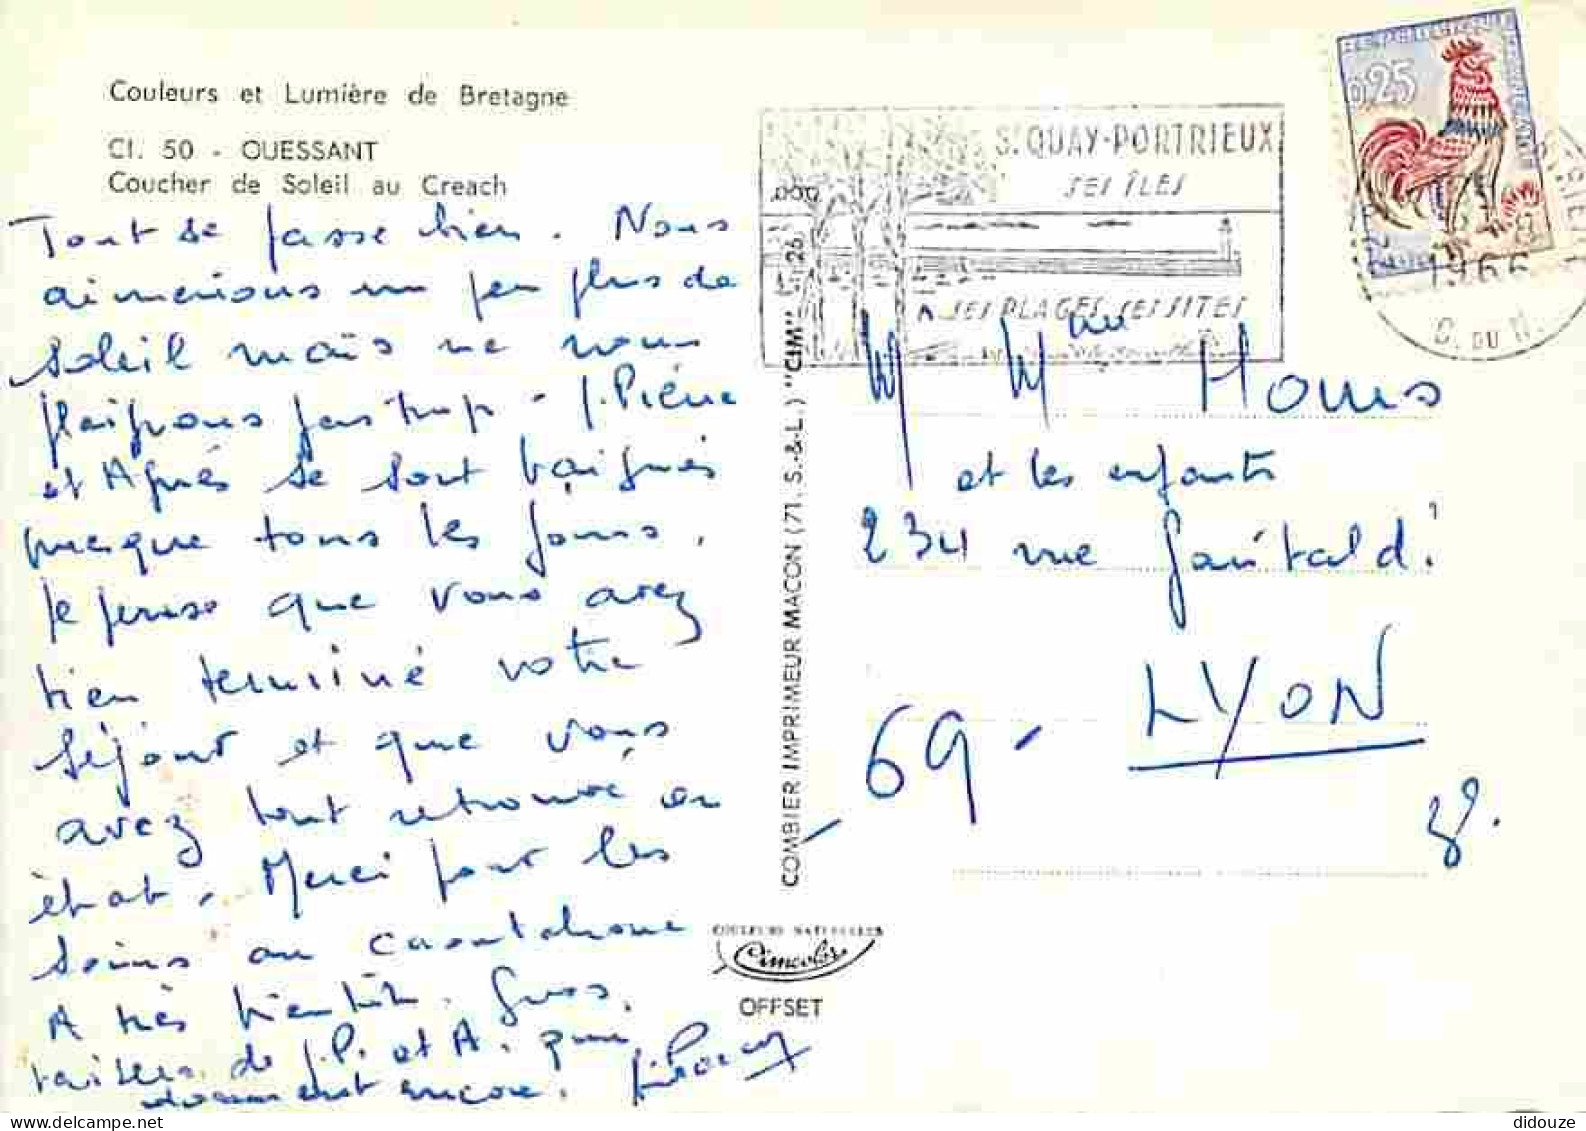 Couleurs et Lumière de Bretagne
Cl. 50 - OUESSANT
Coucher de Soleil au Creach
Tout se passe bien. Nous
aimerions un peu plus de
soleil mais ne nous
plaignons pas trop - J. Pierre
et Agnès se sont baignés
presque tous les jours.
Je pense que vous avez
bien terminé votre
séjour et que vous
avez tout retrouvé en
état. Merci pour les
soins au caoutchouc
A très bientôt. Gros.
de J.P. et A. qui
dorment encore.
COMBIER IMPRIMEUR MACON (71. S.-&-L.) "CIM"
COULEURS NATURELLES
Cimcolor
OFFSET
St QUAY-PORTRIEUX
SES ÎLES
SES PLAGES, SES SITES
0,25
1966
C. DU N.
M Mme Hours
et les enfants
234 rue
69 - LYON
3e.
didouze
delcampe.net